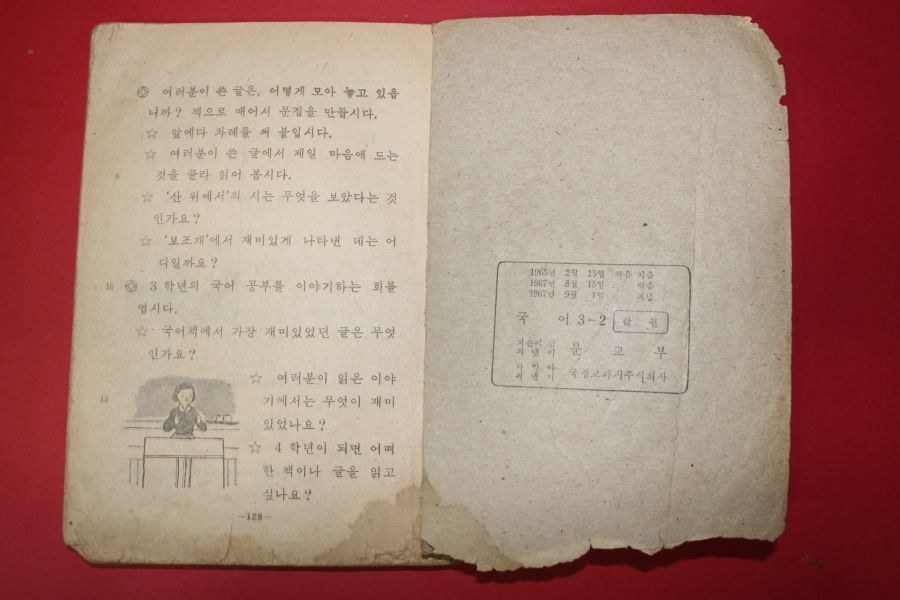 ◎ 여러분이 쓴 글은, 어떻게 모아 놓고 있읍
니까? 책으로 매어서 문집을 만듭시다.
☆ 앞에다 차례를 써 붙입시다.
☆ 여러분이 쓴 글에서 제일 마음에 드는
5 것을 골라 읽어 봅시다.
☆ '산 위에서'의 시는 무엇을 보았다는 것
인가요?
☆ '보조개'에서 재미있게 나타낸 데는 어
디일까요?
10 ◎ 3학년의 국어 공부를 이야기하는 회를
엽시다.
☆ 국어책에서 가장 재미있었던 글은 무엇
인가요?
☆ 여러분이 읽은 이야
15 기에서는 무엇이 재미
있었나요?
☆ 4학년이 되면 어떠
한 책이나 글을 읽고
싶나요?
—128—
1965년 2월 15일 처음 지음
1967년 8월 15일 박음
1967년 9월 1일 펴냄
국 어 3-2
문 교 부
국정교과서주식회사